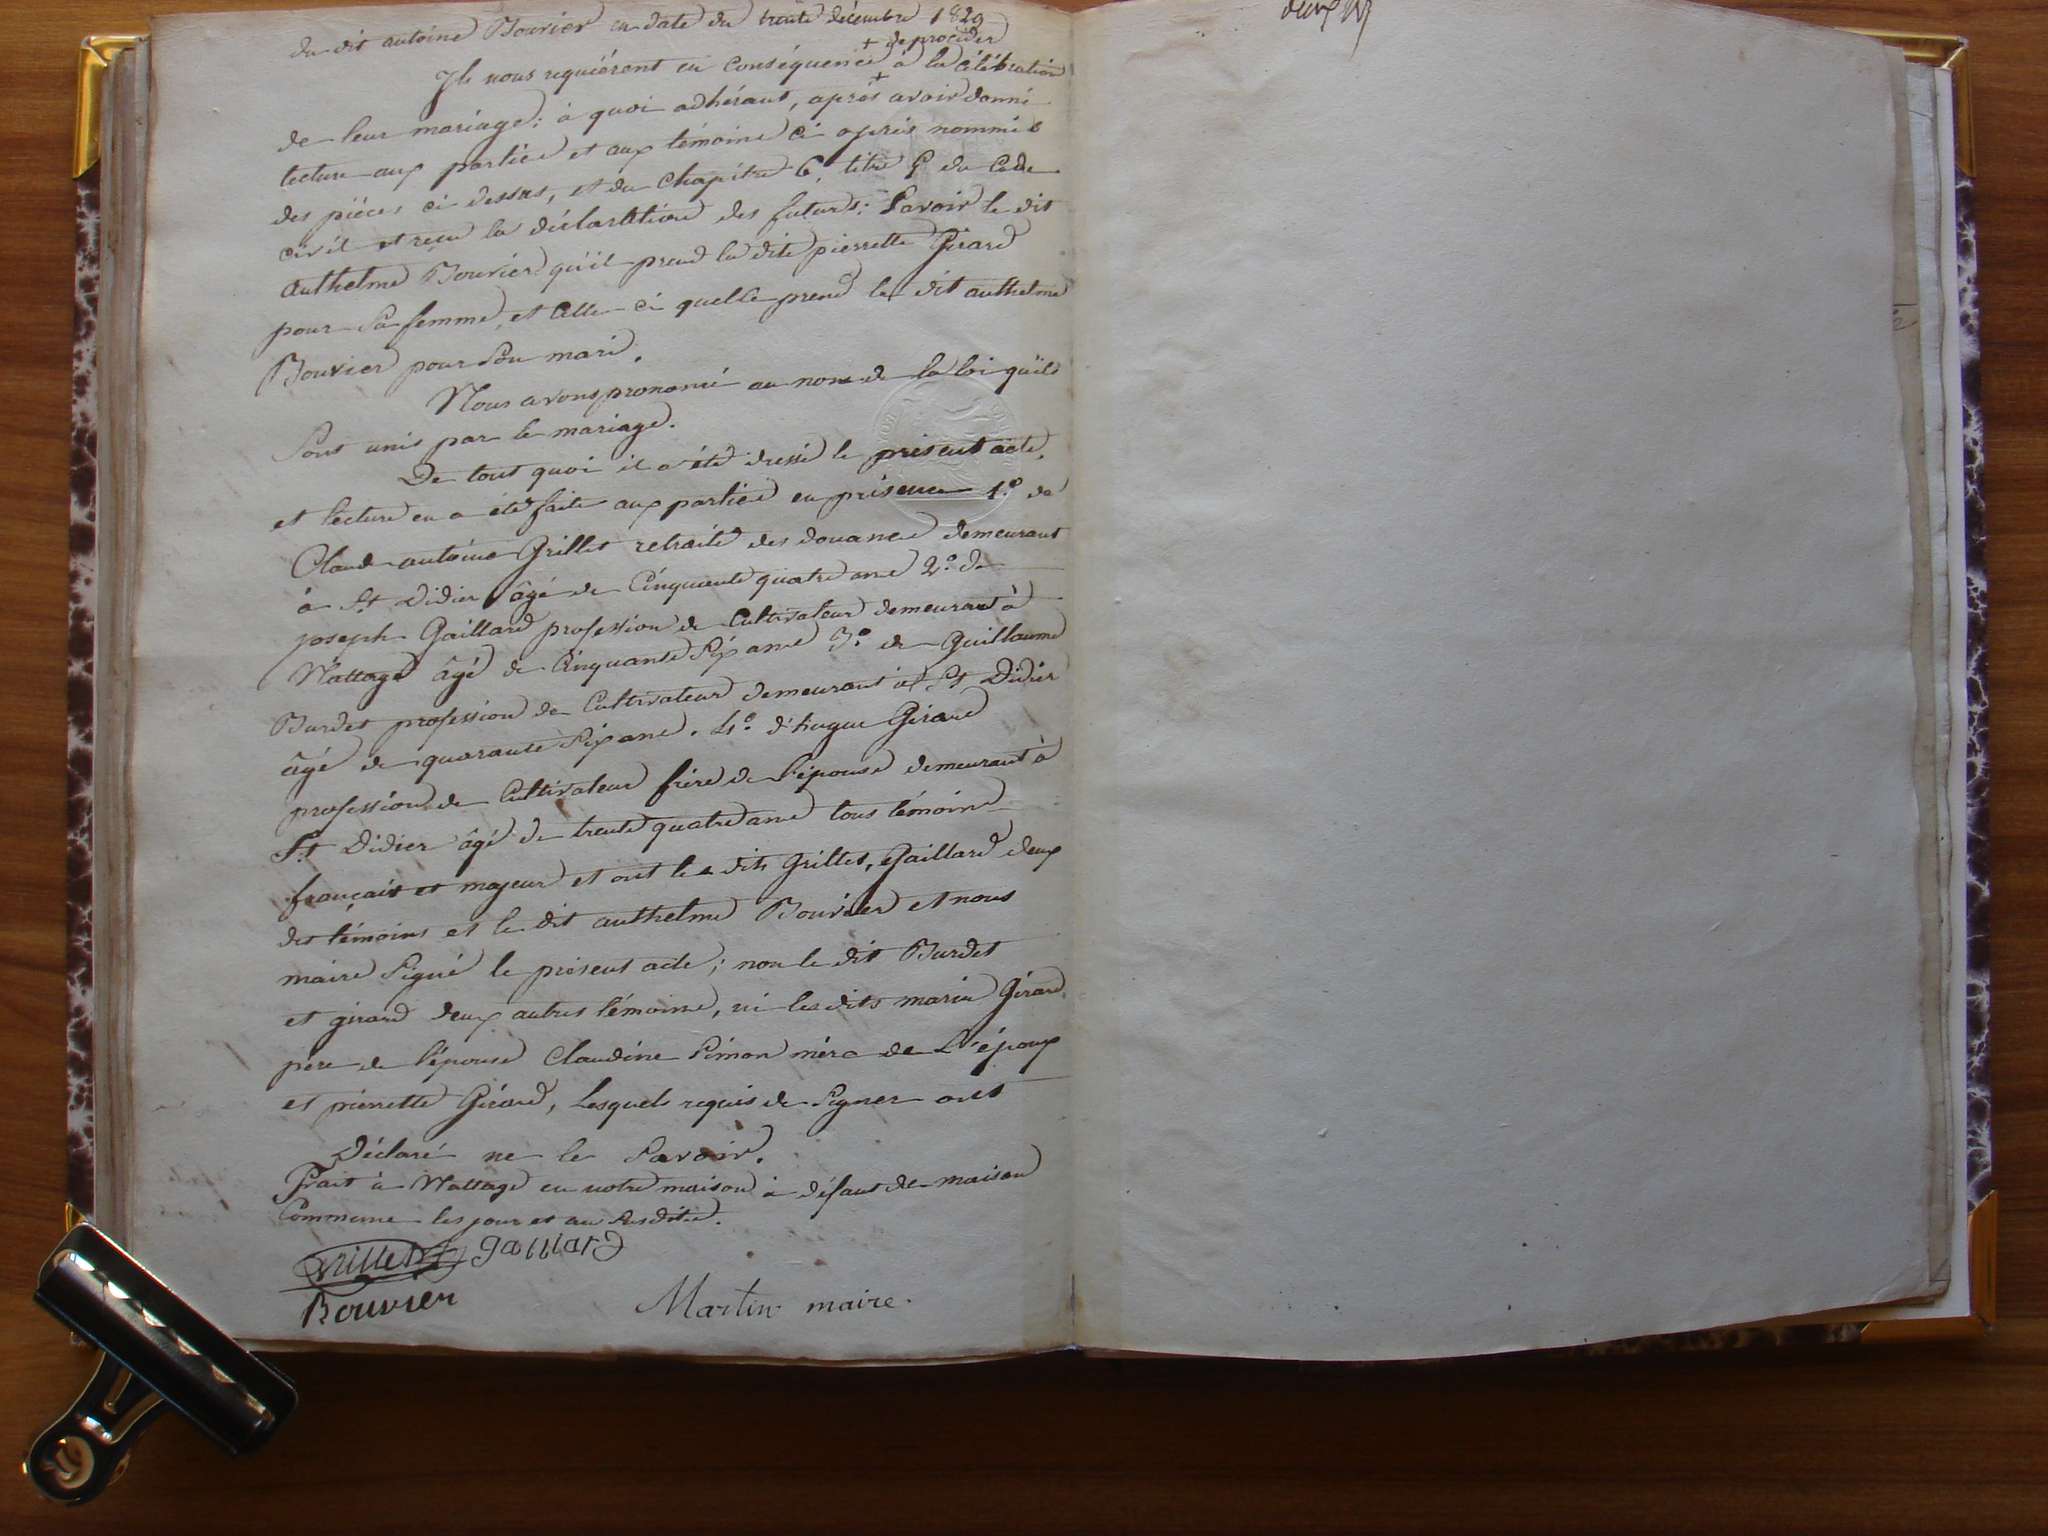 du dit antoine Bouvier en date du trente décembre 1829
+ de procéder
Ils nous requièrent en conséquence + à la célébration
de leur mariage; à quoi adhérant, après avoir donné
lecture aux parties et aux témoins ci après nommés
des pièces ci dessus, et du chapitre 6, titre 5 du Code
civil et reçu la déclaration des futurs; Savoir le dit
anthelme Bouvier qu'il prend la dite pierrette Girard
pour Sa femme, et celle ci quelle prend le dit anthelme
Bouvier pour Son mari.
Nous avons prononcé au nom de la loi qu'ils
Sont unis par le mariage.
De tout quoi il a été dressé le présent acte,
et lecture en a été faite aux parties en présence 1.º de
Claude antoine Grillet retraité des douanes demeurant
à S.t Didier âgé de Cinquante quatre ans 2.º de
joseph Gaillard profession de Cultivateur demeurant à
Nattage âgé de Cinquante Six ans 3.º de Guillaume
Burdet profession de Cultivateur demeurant à S.t Didier
âgé de quarante Six ans. 4.º d'hugue Girard
profession de Cultivateur frère de l'épouse demeurant à
S.t Didier âgé de trente quatre ans tous témoins
français et majeur et ont les dits Grillet, Gaillard deux
des témoins et le dit anthelme Bouvier et nous
maire Signé le présent acte; non le dit Burdet
et girard deux autres témoins, ni les dits marin Girard
père de l'épouse Claudine Simon mère de L'époux
et pierrette Girard, Lesquels requis de Signer ont
Déclaré ne le Savoir.
Fait à Nattage en notre maison à défaut de maison
Commune les jour et an Susdits.
Grillet gailiard
Bouvier Martin maire.